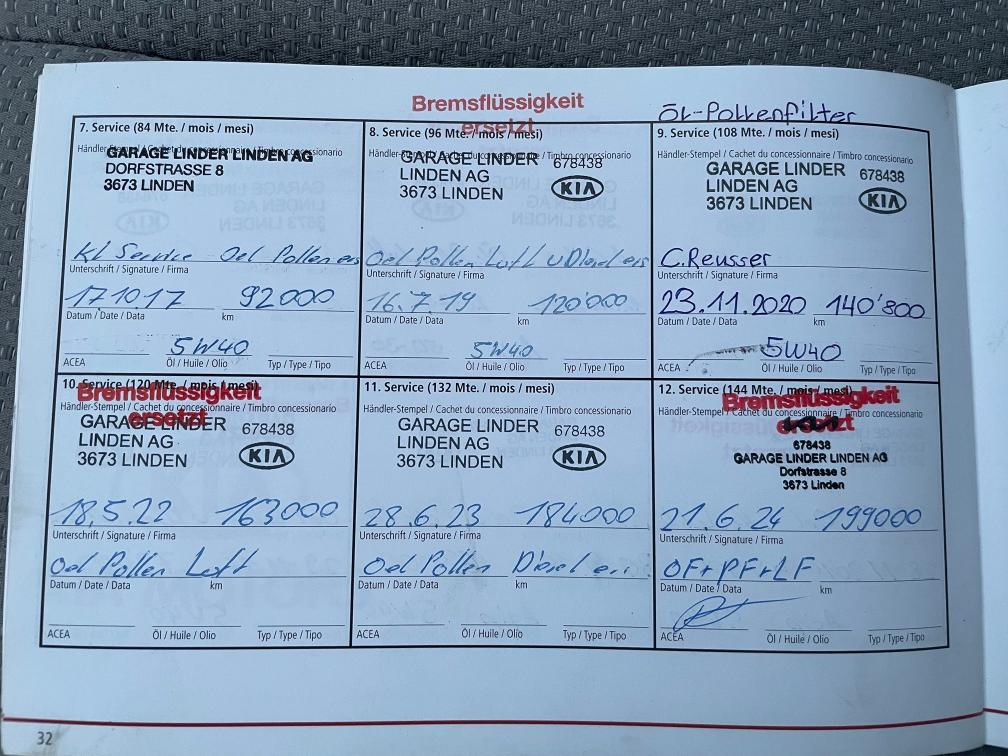 Bremsflüssigkeit
ersetzt
Öl-Pollenfilter
7. Service (84 Mte. / mois / mesi)
Händler-Stempel / Cachet du concessionnaire / Timbro concessionario
GARAGE LINDER LINDEN AG
DORFSTRASSE 8
3673 LINDEN
Kl Service Oel Pollen ers
Unterschrift / Signature / Firma
171017 92000
Datum / Date / Data km
5W40
ACEA Öl / Huile / Olio Typ / Type / Tipo
8. Service (96 Mte. / mois / mesi)
Händler-Stempel / Cachet du concessionnaire / Timbro concessionario
GARAGE LINDER 678438
LINDEN AG
3673 LINDEN KIA
Oel Pollen Luft u Diesel ers
Unterschrift / Signature / Firma
16.7.19 120'000
Datum / Date / Data km
5W40
ACEA Öl / Huile / Olio Typ / Type / Tipo
9. Service (108 Mte. / mois / mesi)
Händler-Stempel / Cachet du concessionnaire / Timbro concessionario
GARAGE LINDER 678438
LINDEN AG
3673 LINDEN KIA
C.Reusser
Unterschrift / Signature / Firma
23.11.2020 140'800
Datum / Date / Data km
5W40
ACEA Öl / Huile / Olio Typ / Type / Tipo
10. Service (120 Mte. / mois / mesi)
Bremsflüssigkeit
ersetzt
Händler-Stempel / Cachet du concessionnaire / Timbro concessionario
GARAGE LINDER 678438
LINDEN AG
3673 LINDEN KIA
18.5.22 163000
Unterschrift / Signature / Firma
Oel Pollen Luft
Datum / Date / Data km
ACEA Öl / Huile / Olio Typ / Type / Tipo
11. Service (132 Mte. / mois / mesi)
Händler-Stempel / Cachet du concessionnaire / Timbro concessionario
GARAGE LINDER 678438
LINDEN AG
3673 LINDEN KIA
28.6.23 184000
Unterschrift / Signature / Firma
Oel Pollen Diesel ers.
Datum / Date / Data km
ACEA Öl / Huile / Olio Typ / Type / Tipo
12. Service (144 Mte. / mois / mesi)
Bremsflüssigkeit
ersetzt
Händler-Stempel / Cachet du concessionnaire / Timbro concessionario
678438
GARAGE LINDER LINDEN AG
Dorfstrasse 8
3673 Linden
21.6.24 199000
Unterschrift / Signature / Firma
OF+PF+LF
Datum / Date / Data km
ACEA Öl / Huile / Olio Typ / Type / Tipo
32